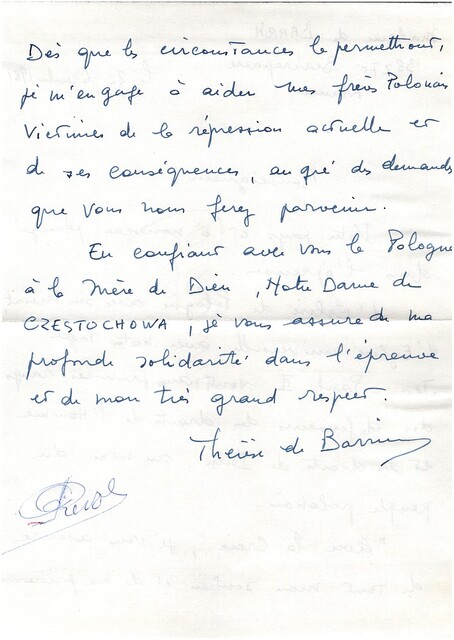 Dès que les circonstances le permettront,
je m'engage à aider mes frères Polonais
victimes de la répression actuelle et
de ses conséquences, au gré des demandes
que vous nous ferez parvenir.
En confiant avec vous la Pologne
à la Mère de Dieu, Notre Dame de
CZESTOCHOWA, je vous assure de ma
profonde solidarité dans l'épreuve
et de mon très grand respect.
Thérèse de